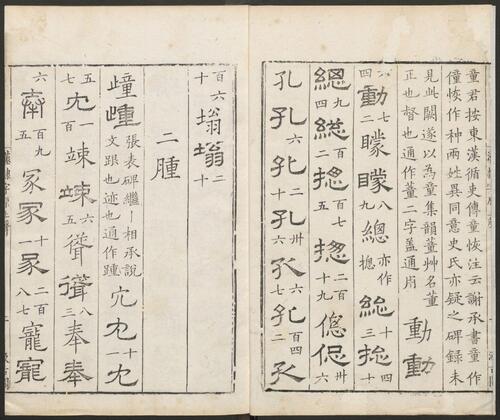 童君按東漢循吏傳童恢注云謝承書童作
僮恢作种兩姓異同意史氏亦疑之碑録未
見此闕遂以為童集韻董艸名董
正也督也通作董二字蓋通用 動動
六四動七二矇矇八九總亦作揔總三十四
總總九四百二揔百七十揔二百九偬促卅六
孔孔六孔二十孔卅六孔七孔百四二孔
百六十塕塕二十
二腫
歱歱張表碑繼丨相承說
文跟也迹也通作踵 宂宂十一宂
五七宂一百竦竦六五聳聳八三奉奉
六百九五冢冢十一冢二百八七寵寵